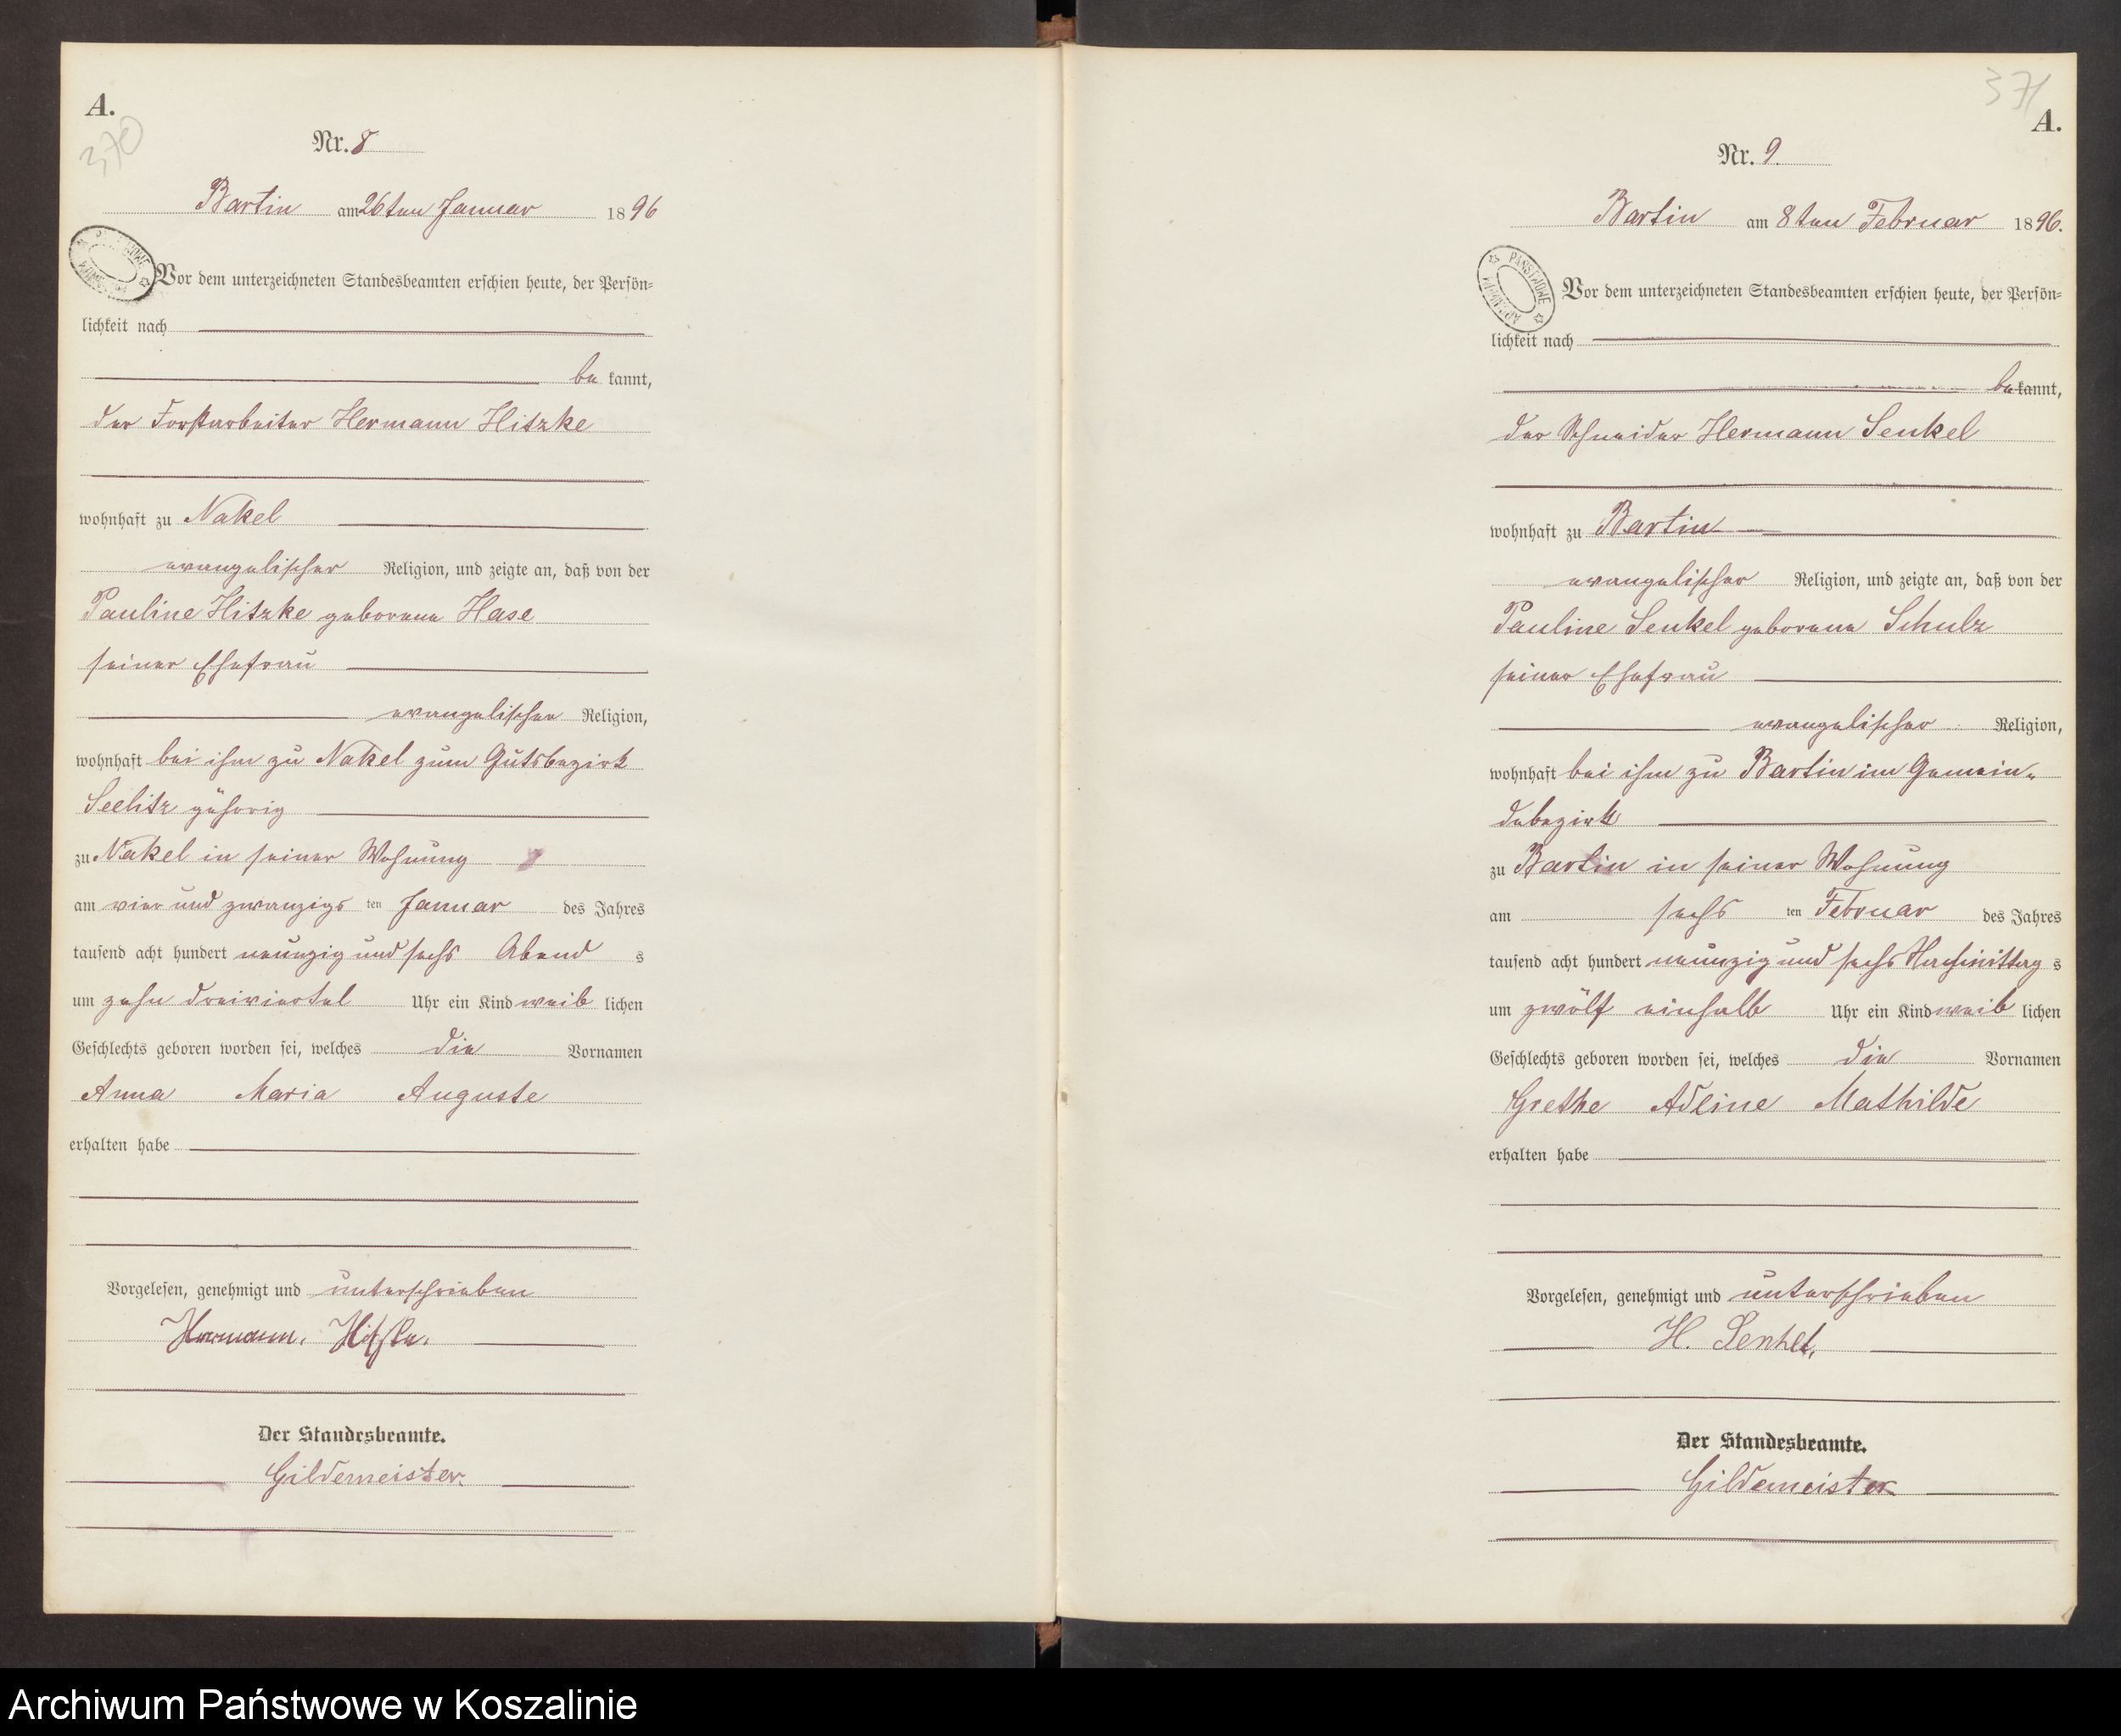 A.
370
Nr. 8
Bartin am 26ten Januar 1896
Vor dem unterzeichneten Standesbeamten erschien heute, der Persön=
lichkeit nach
bekannt,
der Forstarbeiter Hermann Hitzke
wohnhaft zu Nakel
evangelischer Religion, und zeigte an, daß von der
Pauline Hitzke geborene Hase
seiner Ehefrau
evangelischer Religion,
wohnhaft bei ihm zu Nakel zum Gutsbezirk
Seelitz gehörig
zu Nakel in seiner Wohnung
am vier und zwanzigs ten Januar des Jahres
tausend acht hundert neunzig und sechs Abend s
um zehn dreiviertel Uhr ein Kind weib lichen
Geschlechts geboren worden sei, welches die Vornamen
Anna Maria Auguste
erhalten habe
Vorgelesen, genehmigt und unterschrieben
Hermann. Hitzke.
Der Standesbeamte.
Gildemeister.
371
A.
Nr. 9.
Bartin am 8ten Februar 1896.
PAŃSTWOWE
Vor dem unterzeichneten Standesbeamten erschien heute, der Persön=
lichkeit nach
bekannt,
der Schneider Hermann Senkel
wohnhaft zu Bartin
evangelischer Religion, und zeigte an, daß von der
Pauline Senkel geborene Schulz
seiner Ehefrau
evangelischer Religion,
wohnhaft bei ihm zu Bartin im Gemein-
debezirk
zu Bartin in seiner Wohnung
am sechs ten Februar des Jahres
tausend acht hundert neunzig und sechs Nachmittag s
um zwölf einhalb Uhr ein Kind weib lichen
Geschlechts geboren worden sei, welches die Vornamen
Grethe Adeline Mathilde
erhalten habe
Vorgelesen, genehmigt und unterschrieben
H. Senkel.
Der Standesbeamte.
Gildemeister
Archiwum Państwowe w Koszalinie